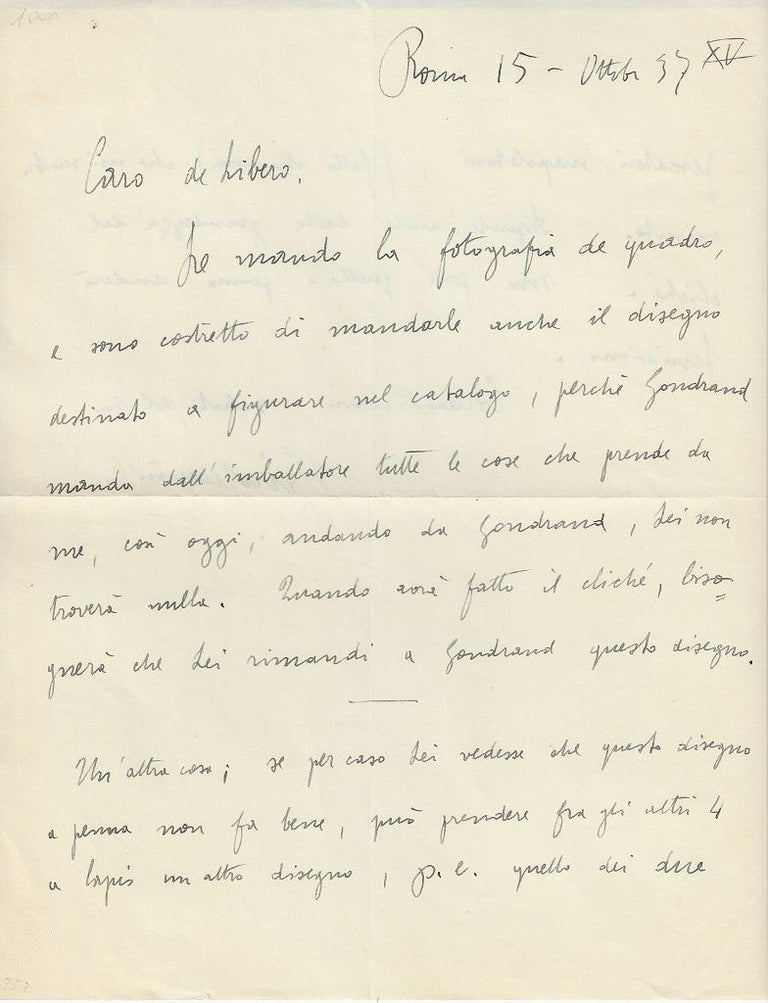 Roma 15 - Ottobr 37 XV
Caro de Libero,
Le mando la fotografia de quadro,
e sono costretto di mandarle anche il disegno
destinato a figurare nel catalogo, perchè Gondrand
manda dall'imballatore tutte le cose che prende da
me, così oggi, andando da Gondrand, Lei non
troverà nulla. Quando avrà fatto il cliché, biso=
gnerà che Lei rimandi a Gondrand questo disegno.
Un'altra cosa; se per caso Lei vedesse che questo disegno
a penna non fa bene, può prendere fra gli altri 4
a lapis un altro disegno, p.e. quello dei due